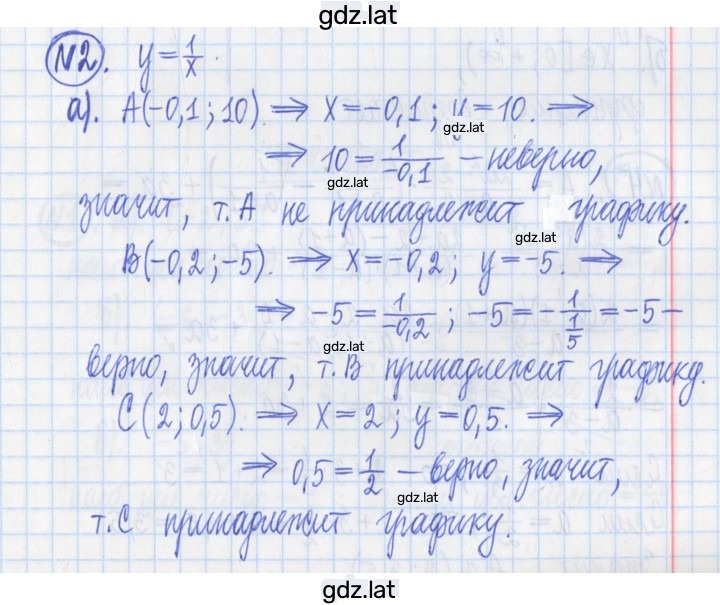 gdz.lat
№2. y = 1/x
а). A(-0,1; 10). ⟹ x = -0,1; y = 10. ⟹
gdz.lat
⟹ 10 = 1/-0,1 – неверно,
gdz.lat
значит, т. A не принадлежит графику.
gdz.lat
B(-0,2; -5). ⟹ x = -0,2; y = -5. ⟹
⟹ -5 = 1/-0,2; -5 = -1/(1/5) = -5 –
gdz.lat
верно, значит, т. B принадлежит графику.
C(2; 0,5). ⟹ x = 2; y = 0,5. ⟹
⟹ 0,5 = 1/2 – верно, значит,
gdz.lat
т. C принадлежит графику.
gdz.lat